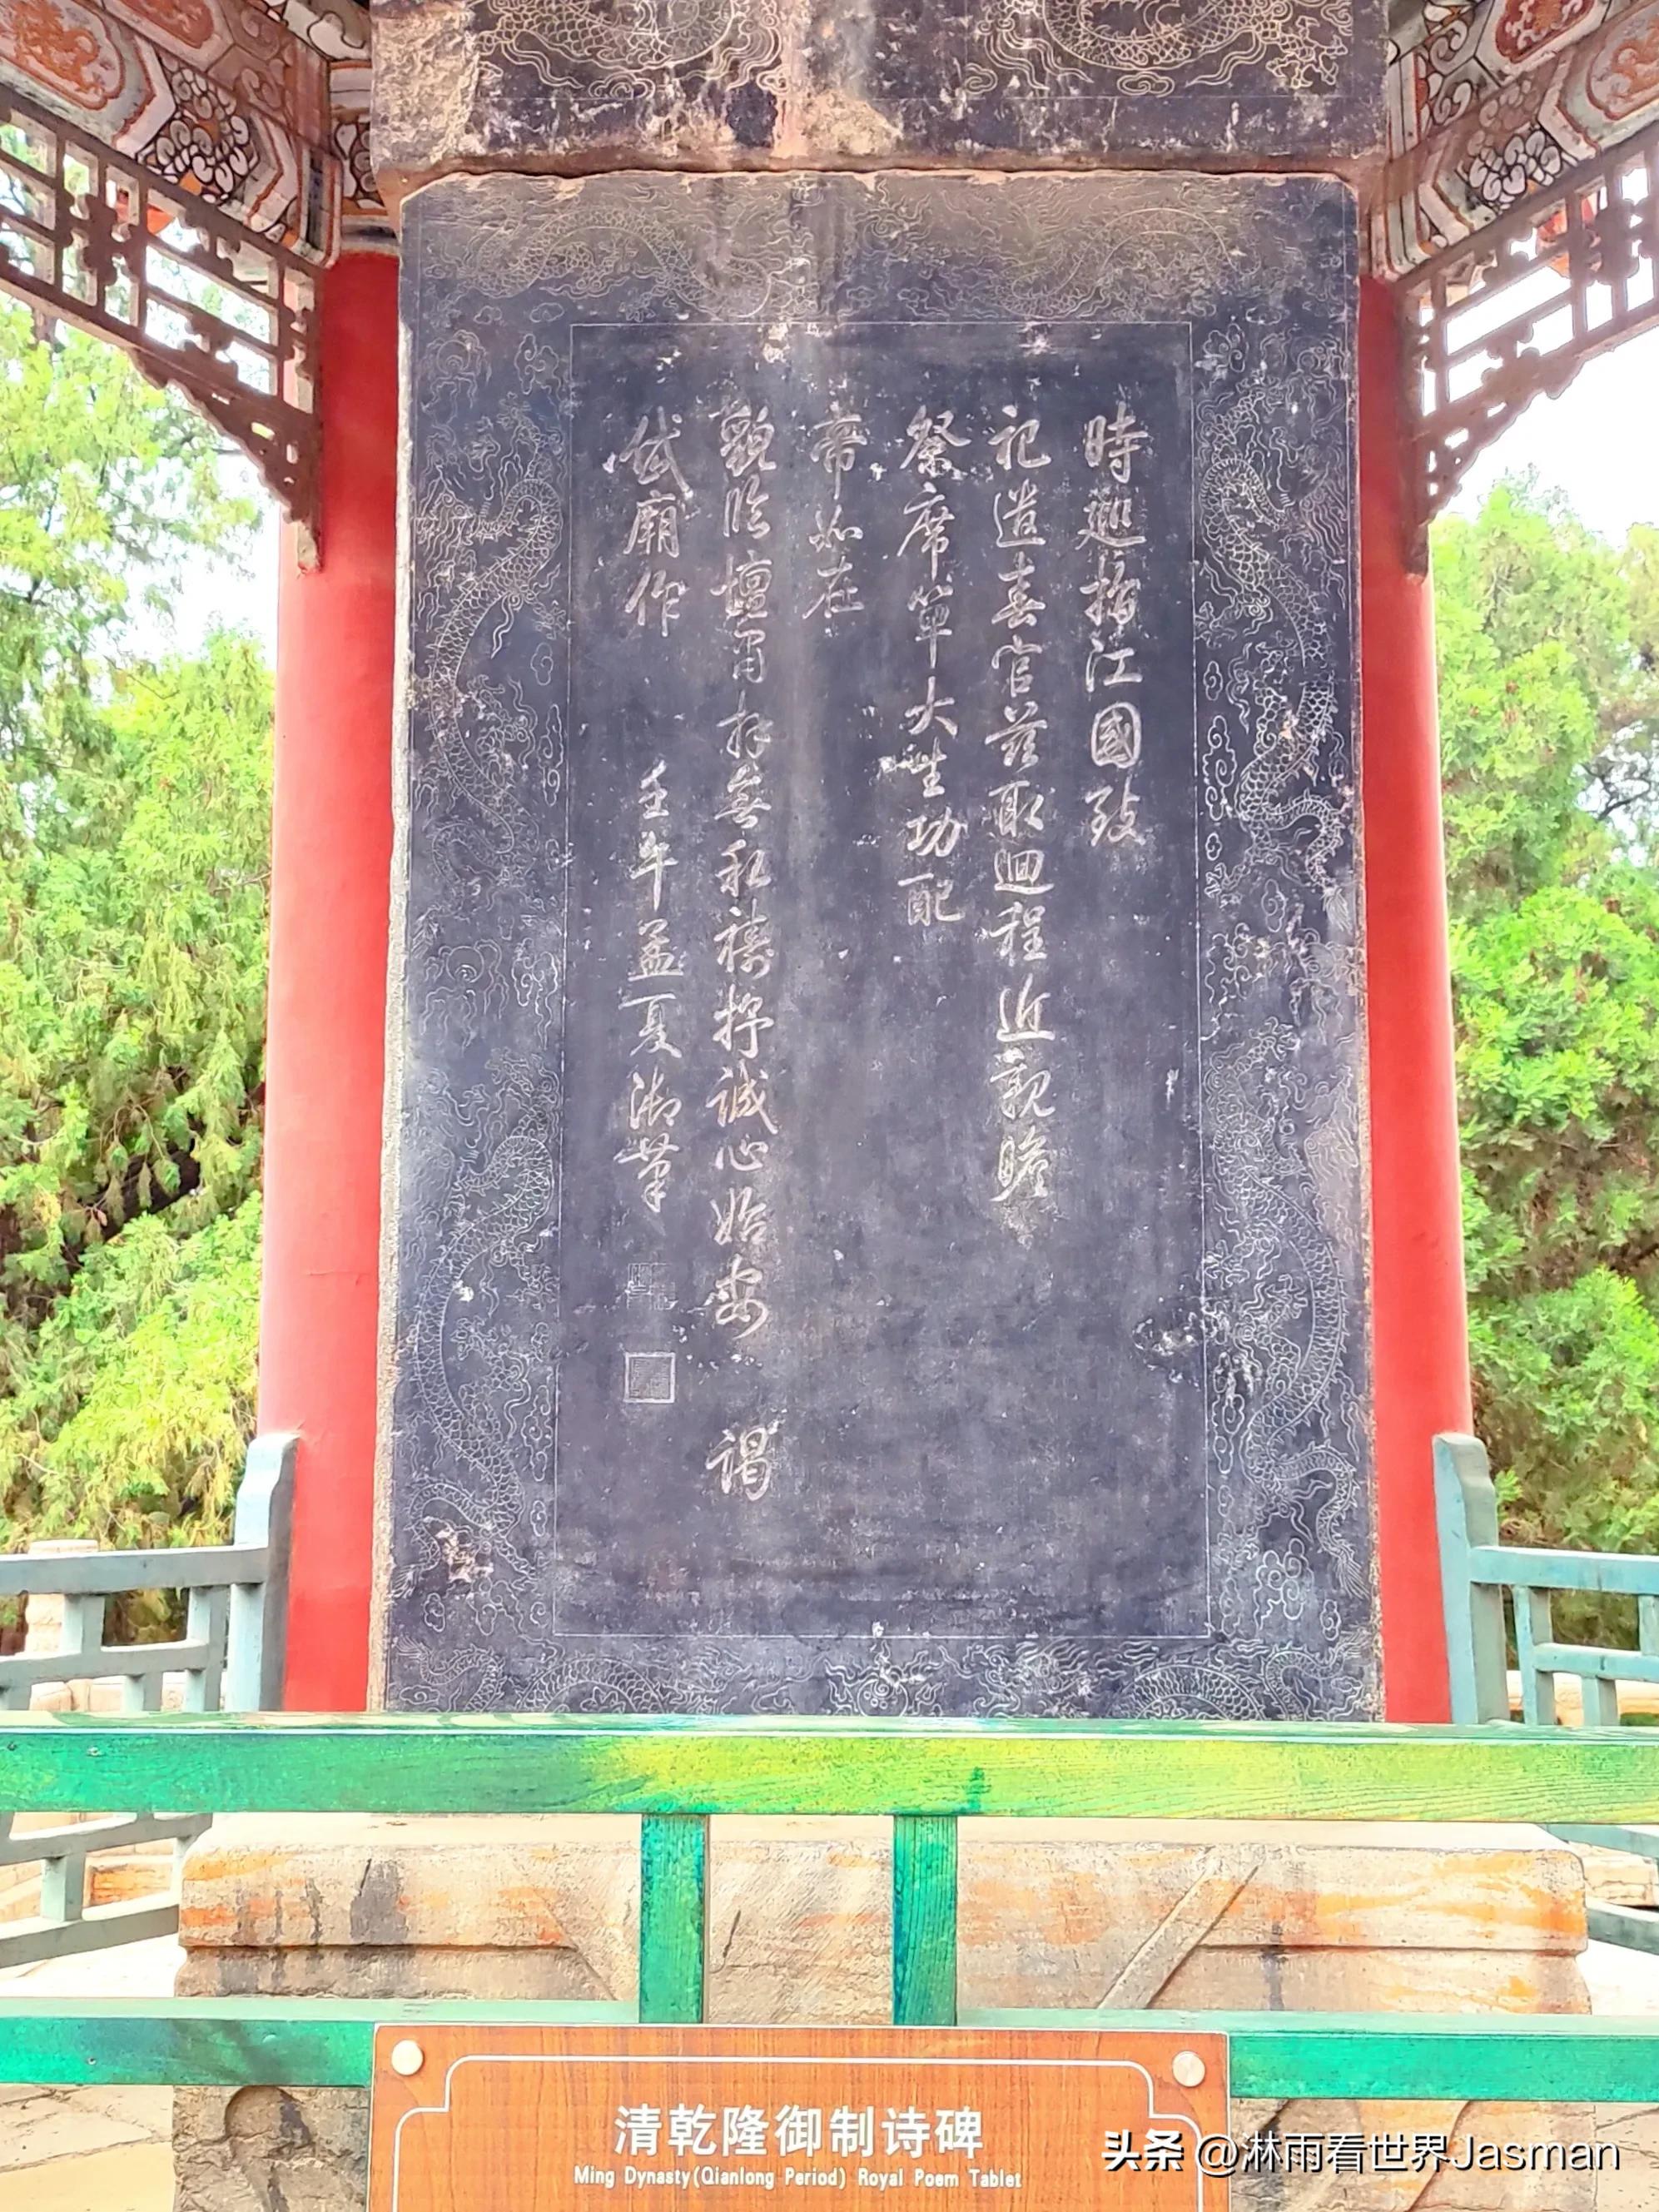 時巡指江國致
祀遣春官茲取迴程近親瞻
祭席單大生功配
帝如在
貌臨壇無私禱抒誠心始安 謁
岱廟作 壬午孟夏御筆
清乾隆御制诗碑
Ming Dynasty(Qianlong Period) Royal Poem Tablet
头条 @淋雨看世界Jasman